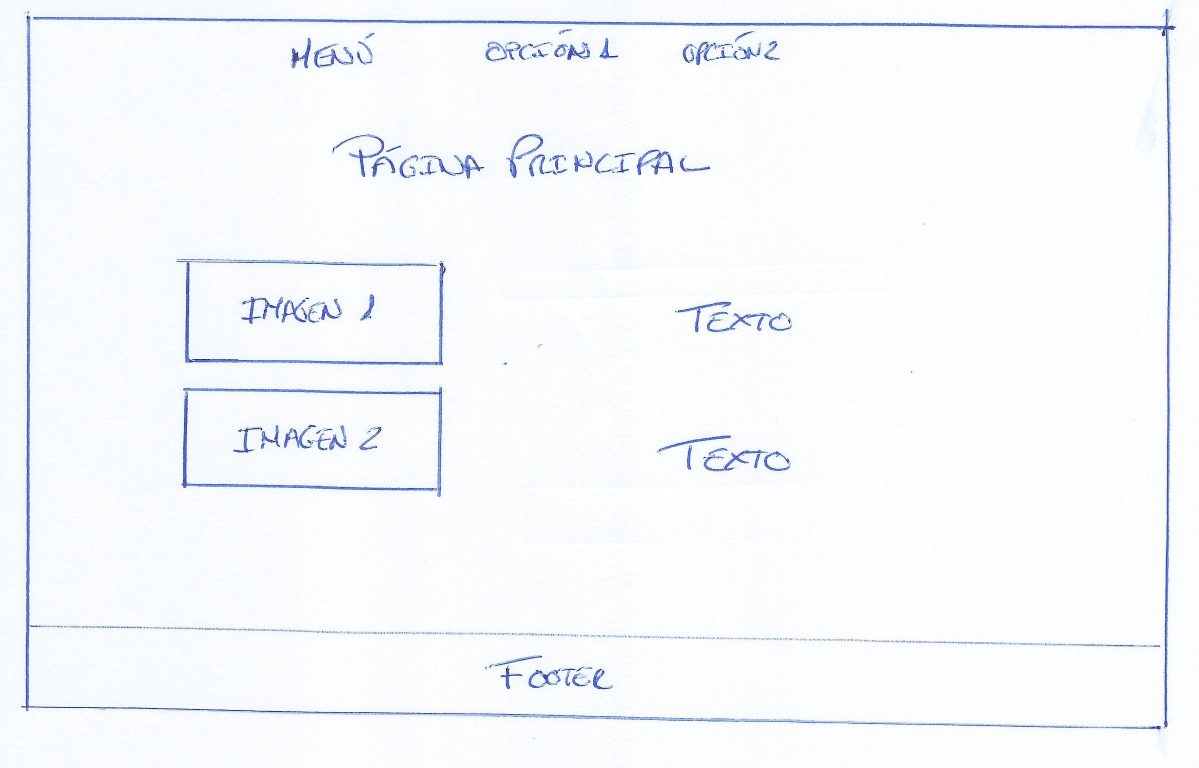 MENÚ OPCIÓN 1 OPCIÓN 2
PÁGINA PRINCIPAL
IMAGEN 1 TEXTO
IMAGEN 2 TEXTO
FOOTER